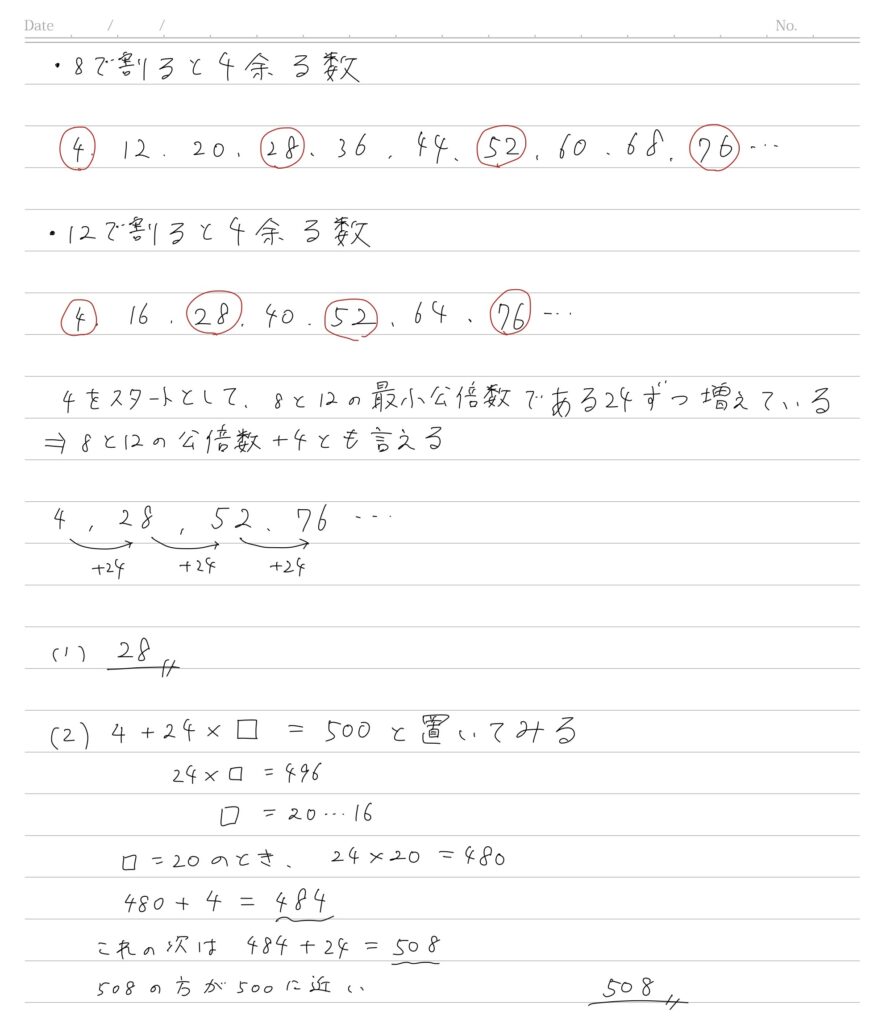 Date / / No.
・8で割ると4余る数
4. 12. 20. 28. 36. 44. 52. 60. 68. 76 …
・12で割ると4余る数
4. 16. 28. 40. 52. 64. 76 …
4をスタートとして、8と12の最小公倍数である24ずつ増えている
⇒8と12の公倍数+4とも言える
4, 28, 52. 76 …
+24 +24 +24
(1) 28
(2) 4+24×□ = 500と置いてみる
24×□ = 496
□ = 20…16
□=20のとき、 24×20 = 480
480 + 4 = 484
これの次は 484+24 = 508
508の方が500に近い 508